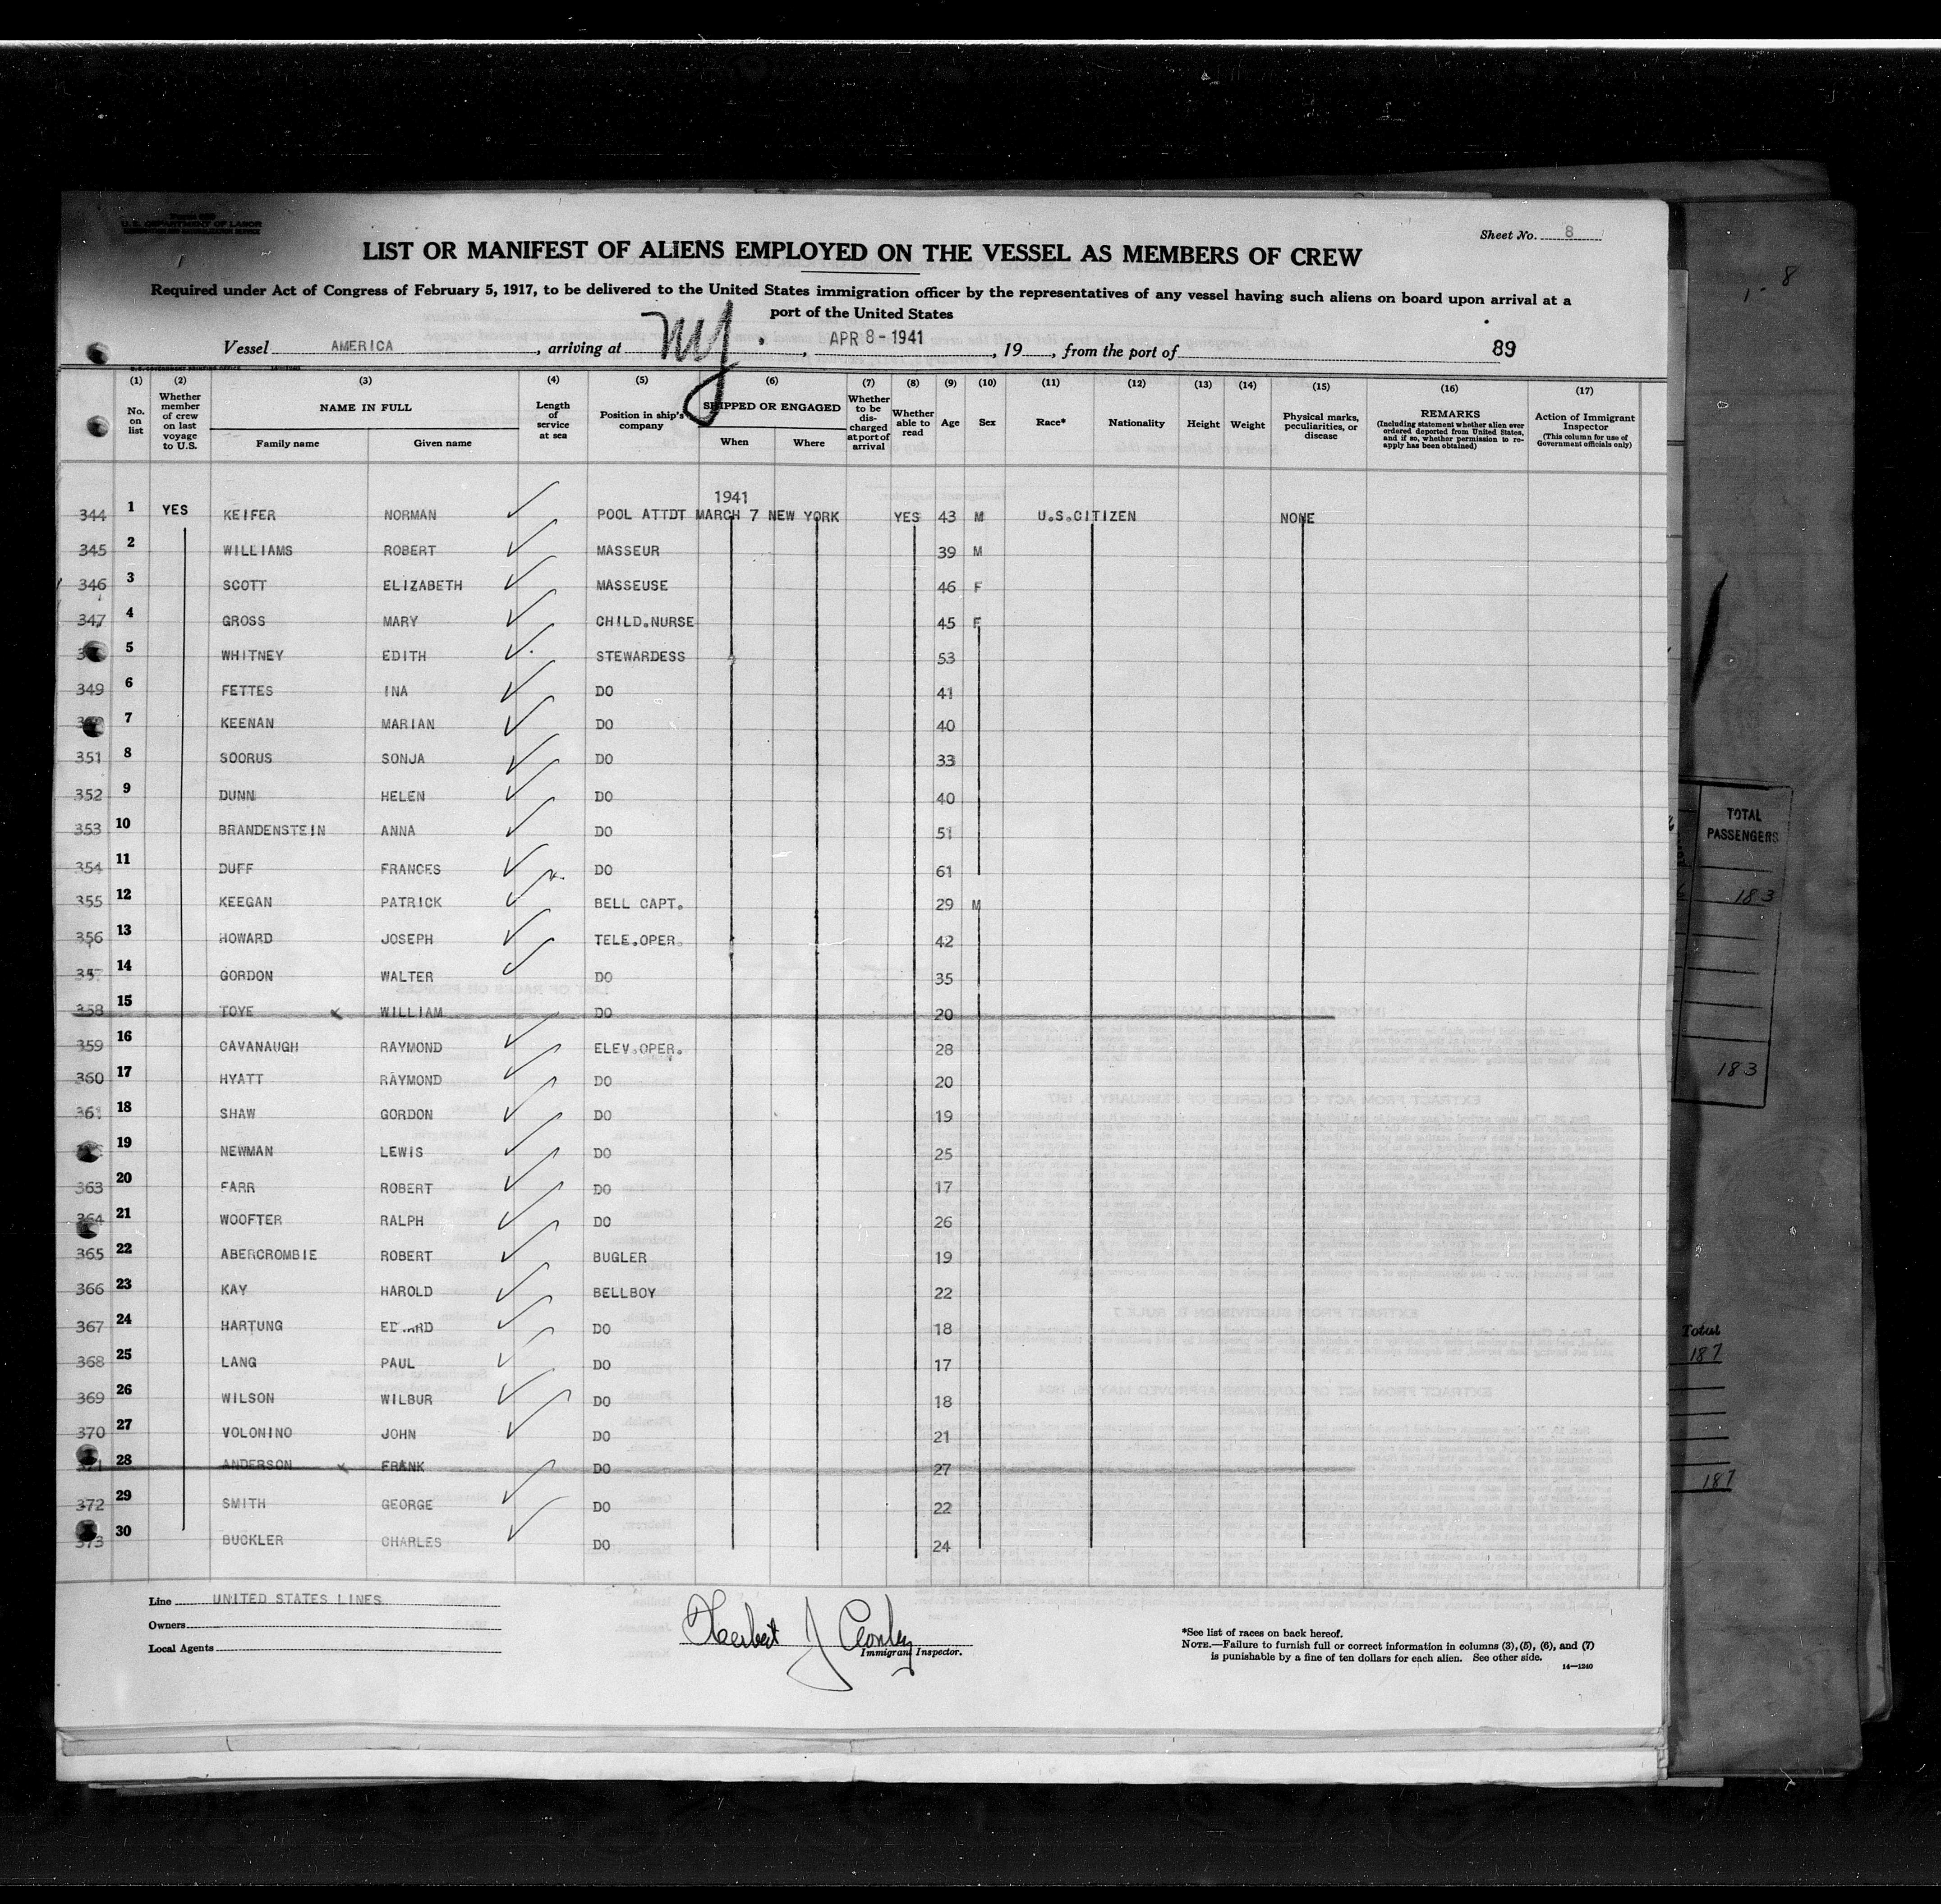 U. S. DEPARTMENT OF LABOR
Sheet No. 8
LIST OR MANIFEST OF ALIENS EMPLOYED ON THE VESSEL AS MEMBERS OF CREW
Required under Act of Congress of February 5, 1917, to be delivered to the United States immigration officer by the representatives of any vessel having such aliens on board upon arrival at a
port of the United States
Vessel AMERICA, arriving at NY., APR 8-1941, 19, from the port of 89
(1) (2) (3) (4) (5) (6) (7) (8) (9) (10) (11) (12) (13) (14) (15) (16) (17)
No. on list Whether member of crew on last voyage to U.S. NAME IN FULL Family name Given name Length of service at sea Position in ship's company SHIPPED OR ENGAGED When Where Whether to be discharged at port of arrival Whether able to read Age Sex Race* Nationality Height Weight Physical marks, peculiarities, or disease REMARKS (Including statement whether alien ever ordered deported from United States, and if so, whether permission to reapply has been obtained) Action of Immigrant Inspector (This column for use of Government officials only)
1941
344 1 YES KEIFER NORMAN POOL ATTDT MARCH 7 NEW YORK YES 43 M U.S.CITIZEN NONE
345 2 WILLIAMS ROBERT MASSEUR 39 M
346 3 SCOTT ELIZABETH MASSEUSE 46 F
347 4 GROSS MARY CHILD.NURSE 45 F
5 WHITNEY EDITH STEWARDESS 53
349 6 FETTES INA DO 41
7 KEENAN MARIAN DO 40
351 8 SOORUS SONJA DO 33
352 9 DUNN HELEN DO 40
353 10 BRANDENSTEIN ANNA DO 51
354 11 DUFF FRANCES DO 61
355 12 KEEGAN PATRICK BELL CAPT. 29 M
356 13 HOWARD JOSEPH TELE.OPER. 42
357 14 GORDON WALTER DO 35
358 15 TOYE x WILLIAM DO 20
359 16 CAVANAUGH RAYMOND ELEV.OPER. 28
360 17 HYATT RAYMOND DO 20
361 18 SHAW GORDON DO 19
19 NEWMAN LEWIS DO 25
363 20 FARR ROBERT DO 17
364 21 WOOFTER RALPH DO 26
365 22 ABERCROMBIE ROBERT BUGLER 19
366 23 KAY HAROLD BELLBOY 22
367 24 HARTUNG EDWARD DO 18
368 25 LANG PAUL DO 17
369 26 WILSON WILBUR DO 18
370 27 VOLONINO JOHN DO 21
371 28 ANDERSON x FRANK DO 27
372 29 SMITH GEORGE DO 22
373 30 BUCKLER CHARLES DO 24
Line UNITED STATES LINES
Owners
Local Agents
Herbert J Conley
Immigrant Inspector.
*See list of races on back hereof.
NOTE.—Failure to furnish full or correct information in columns (3), (5), (6), and (7)
is punishable by a fine of ten dollars for each alien. See other side.
14—1240
8
TOTAL
PASSENGERS
183
183
Total
187
187